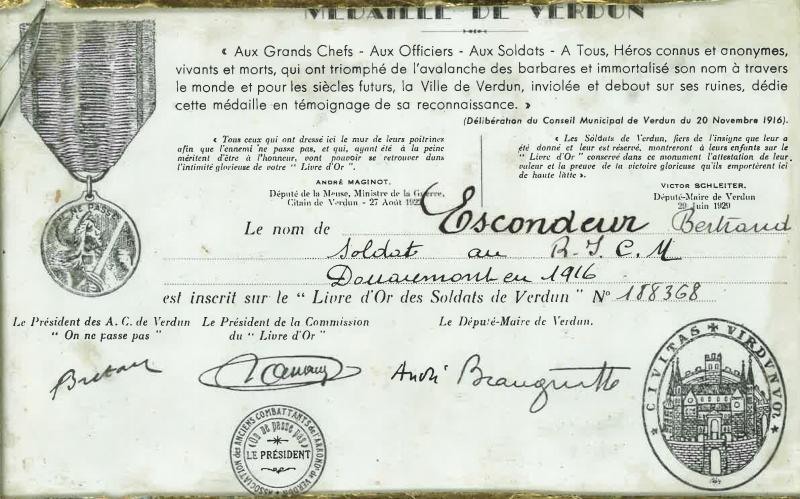 MÉDAILLE DE VERDUN
« Aux Grands Chefs - Aux Officiers - Aux Soldats - A Tous, Héros connus et anonymes,
vivants et morts, qui ont triomphé de l'avalanche des barbares et immortalisé son nom à travers
le monde et pour les siècles futurs, la Ville de Verdun, inviolée et debout sur ses ruines, dédie
cette médaille en témoignage de sa reconnaissance. »
(Délibération du Conseil Municipal de Verdun du 20 Novembre 1916).
« Tous ceux qui ont dressé ici le mur de leurs poitrines
afin que l'ennemi ne passe pas, et qui, ayant été à la peine
méritent d'être à l'honneur, vont pouvoir se retrouver dans
l'intimité glorieuse de votre " Livre d'Or ".
ANDRÉ MAGINOT,
Député de la Meuse, Ministre de la Guerre,
Citain de Verdun - 27 Août 1922
« Les Soldats de Verdun, fiers de l'insigne que leur a
été donné et leur est réservé, montreront à leurs enfants sur le
" Livre d'Or " conservé dans ce monument l'attestation de leur
valeur et la preuve de la victoire glorieuse qu'ils emportèrent ici
de haute lutte ».
VICTOR SCHLEITER,
Député-Maire de Verdun
29 Juin 1929
ON NE PASSE PAS
Le nom de Escondeur Bertrand
Soldat au R.I.C.M
Douaumont en 1916
est inscrit sur le " Livre d'Or des Soldats de Verdun " N° 188368
Le Président des A. C. de Verdun
" On ne passe pas "
Le Président de la Commission
du " Livre d'Or "
Le Député-Maire de Verdun.
André Beauguitte
ASSOCIATION DES ANCIENS COMBATTANTS DE L'ARROND. DE VERDUN
(On ne passe pas)
LE PRÉSIDENT
CIVITAS VIRDVNVM